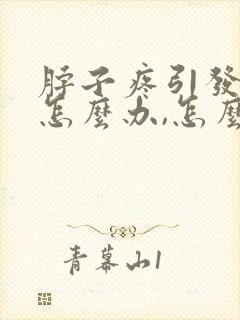 脖子疼引發
怎麼办,怎麼
青幕山1